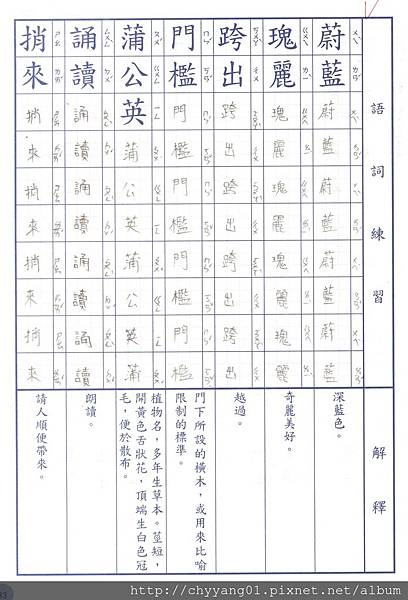 語詞練習
解釋
蔚藍
蔚藍蔚藍蔚藍蔚藍
深藍色。
瑰麗
瑰麗瑰麗瑰麗瑰麗
奇麗美好。
跨出
跨出跨出跨出跨出
越過。
門檻
門檻門檻門檻門檻
門下所設的橫木，或用來比喻
限制的標準。
蒲公英
蒲公英蒲公英蒲
植物名，多年生草本。莖短，
開黃色舌狀花，頂端生白色冠
毛，便於散布。
誦讀
誦讀誦讀誦讀誦讀
朗讀。
捎來
捎來捎來捎來捎來
請人順便帶來。
http://chyyang01.pixnet.net/album